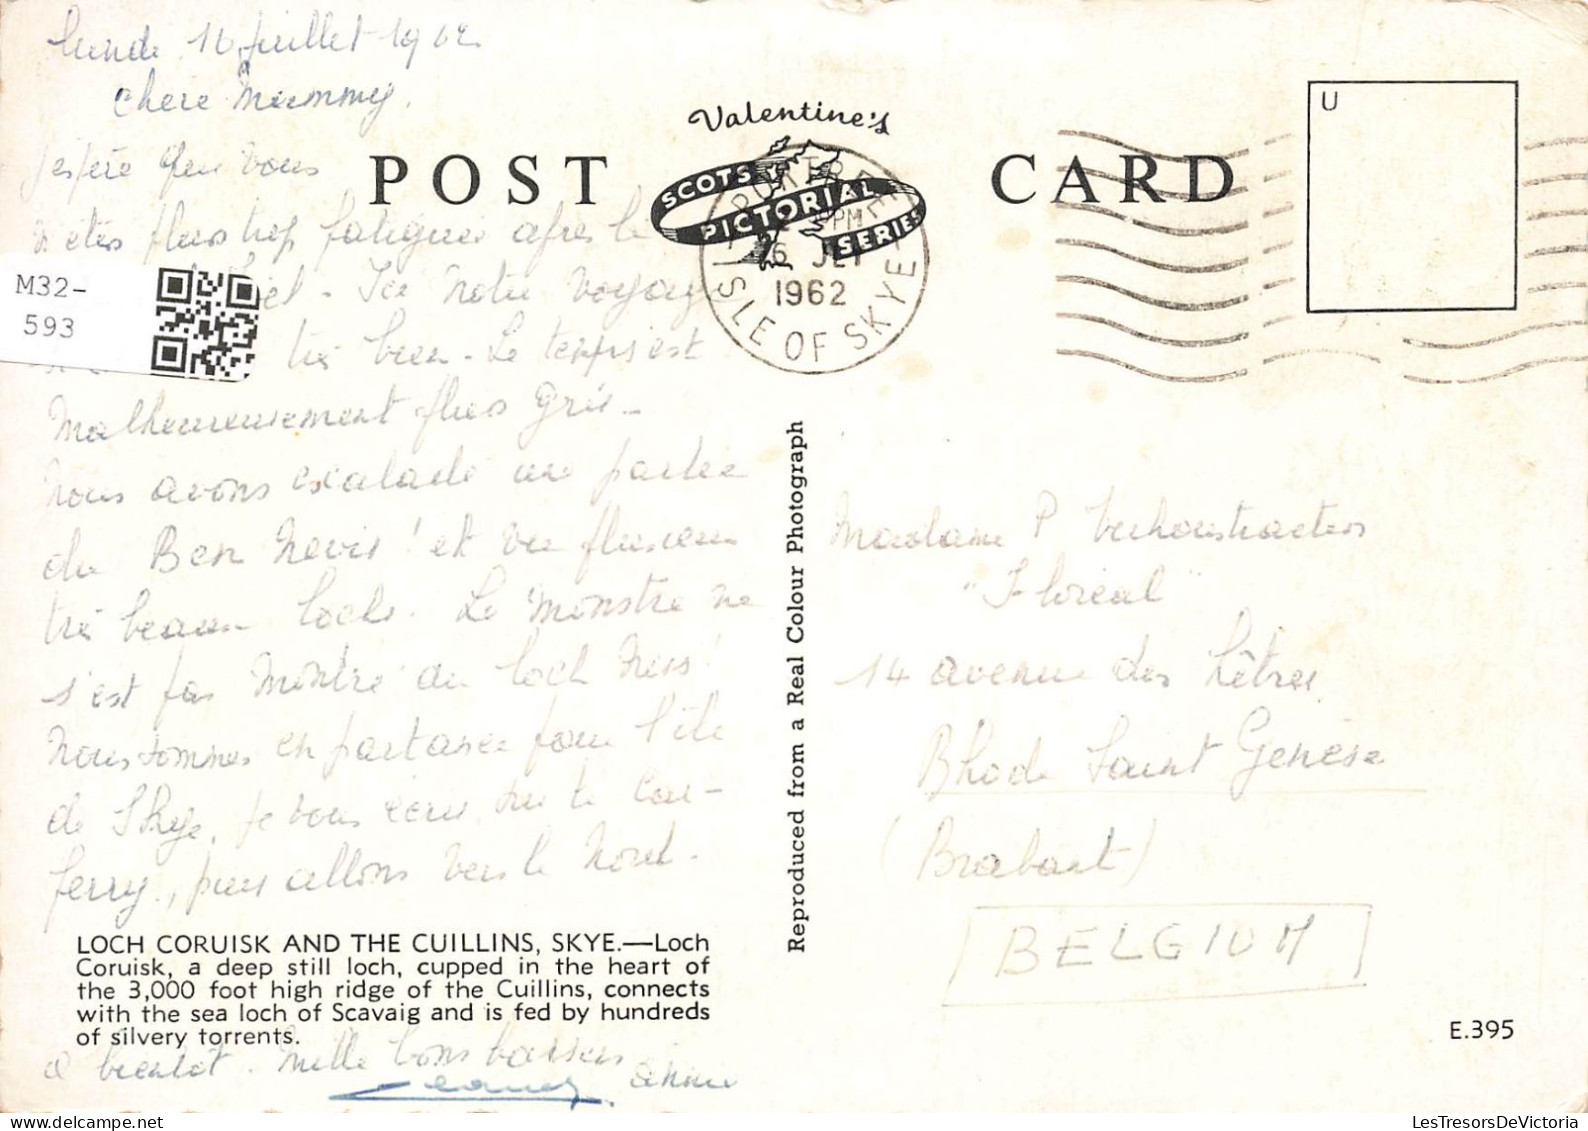 lundi 16 juillet 1962
Chere Mummy.
J'espère que vous
n'êtes plus trop fatiguée après le
Ici notre voyage
très bien - Le temps est
Malheureusement plus gris -
Nous avons escaladé une partie
du Ben Nevis ! et vu plusieurs
très beaux lochs. Le monstre ne
s'est pas montré au loch Ness !
Nous sommes en partance pour l'île
de Skye. Je vous écris sur le Car-
ferry, puis allons vers le Nord.
LOCH CORUISK AND THE CUILLINS, SKYE.—Loch
Coruisk, a deep still loch, cupped in the heart of
the 3,000 foot high ridge of the Cuillins, connects
with the sea loch of Scavaig and is fed by hundreds
of silvery torrents.
à bientôt. Mille bons baisers
Anne
M32-
593
POST CARD
Valentine's
SCOTS
PICTORIAL
SERIES
PORTREE
PM
16 JLY
1962
ISLE OF SKYE
U
Reproduced from a Real Colour Photograph
Madame P
"Floréal"
14 avenue des Hêtres
Rhode Saint Genèse
(Brabant)
BELGIUM
E.395
LesTresorsDeVictoria.com